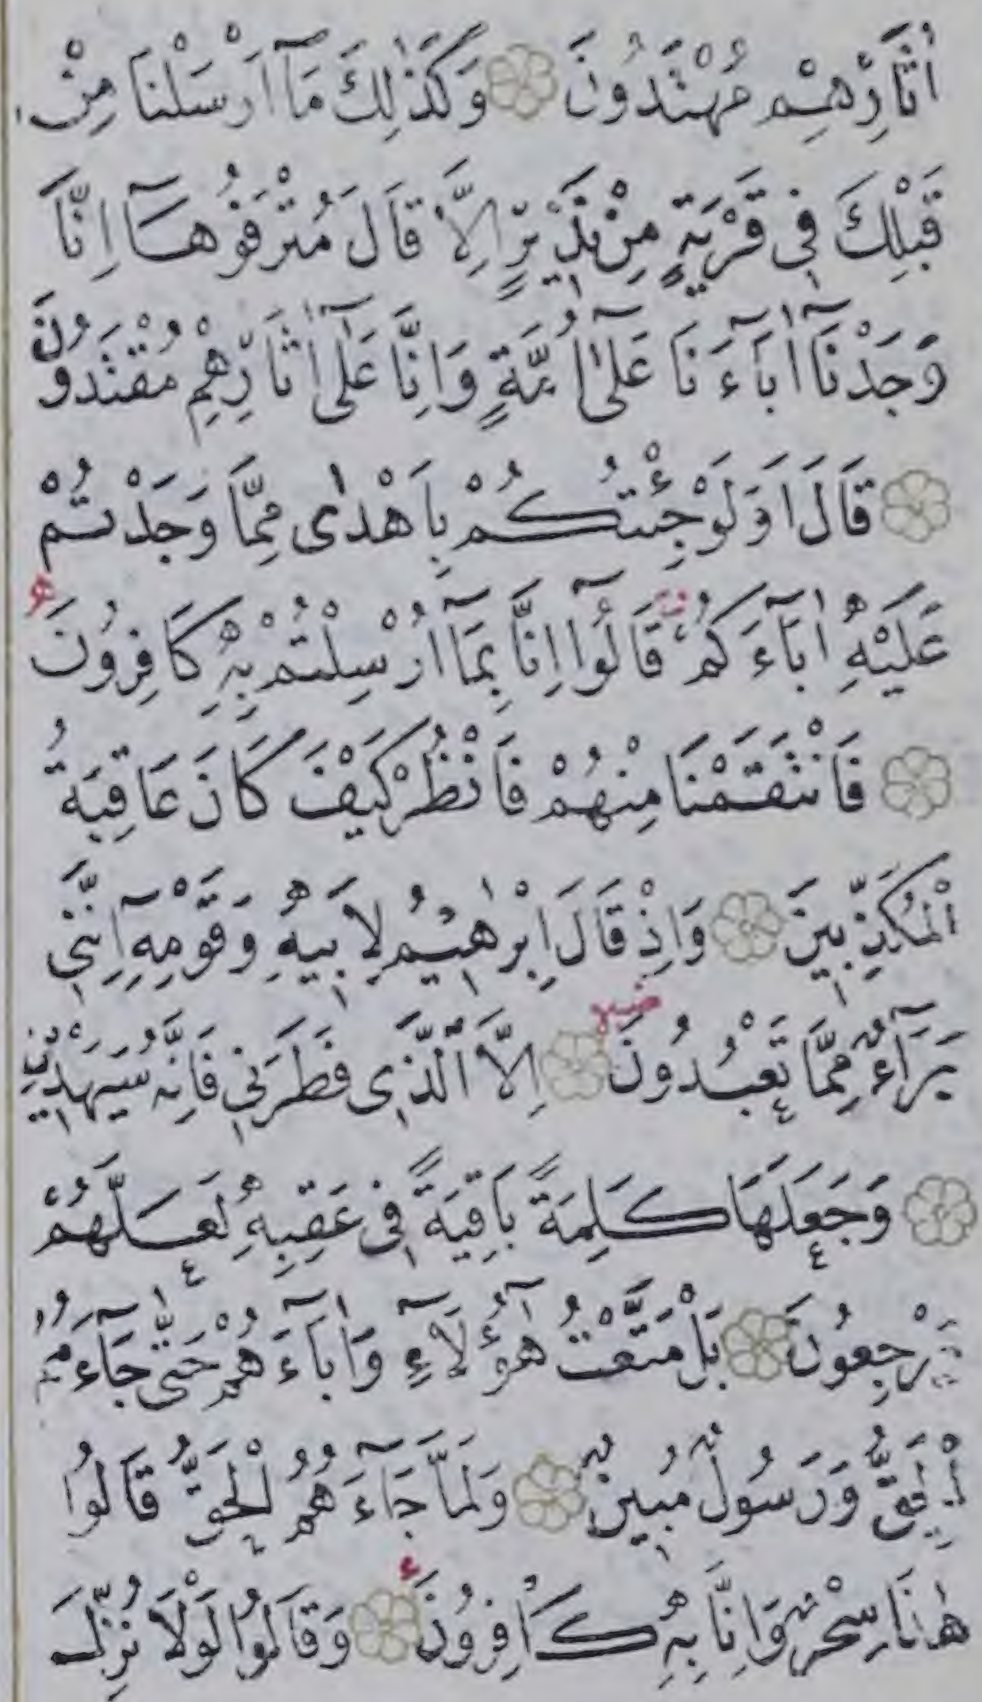 اٰثَارِهِمْ مُهْتَدُونَ وَكَذٰلِكَ مَٓا اَرْسَلْنَا مِنْ
قَبْلِكَ فٖي قَرْيَةٍ مِنْ نَذٖيرٍ اِلَّا قَالَ مُتْرَفُوهَٓا اِنَّا
وَجَدْنَٓا اٰبَٓاءَنَا عَلٰٓى اُمَّةٍ وَاِنَّا عَلٰٓى اٰثَارِهِمْ مُقْتَدُونَ
قَالَ اَوَلَوْ جِئْتُكُمْ بِاَهْدٰى مِمَّا وَجَدْتُمْ
عَلَيْهِ اٰبَٓاءَكُمْ قَالُٓوا اِنَّا بِمَٓا اُرْسِلْتُمْ بِهٖ كَافِرُونَ
فَانْتَقَمْنَا مِنْهُمْ فَانْظُرْ كَيْفَ كَانَ عَاقِبَةُ
الْمُكَذِّبٖينَ وَاِذْ قَالَ اِبْرٰهٖيمُ لِاَبٖيهِ وَقَوْمِهٖٓ اِنَّنٖي
بَرَٓاءٌ مِمَّا تَعْبُدُونَ اِلَّا الَّذٖي فَطَرَنٖي فَاِنَّهُ سَيَهْدٖينِ
وَجَعَلَهَا كَلِمَةً بَاقِيَةً فٖي عَقِبِهٖ لَعَلَّهُمْ
يَرْجِعُونَ بَلْ مَتَّعْتُ هٰٓؤُلَٓاءِ وَاٰبَٓاءَهُمْ حَتّٰى جَٓاءَهُمُ
الْحَقُّ وَرَسُولٌ مُبٖينٌ وَلَمَّا جَٓاءَهُمُ الْحَقُّ قَالُوا
هٰذَا سِحْرٌ وَاِنَّا بِهٖ كَافِرُونَ وَقَالُوا لَوْلَا نُزِّلَ